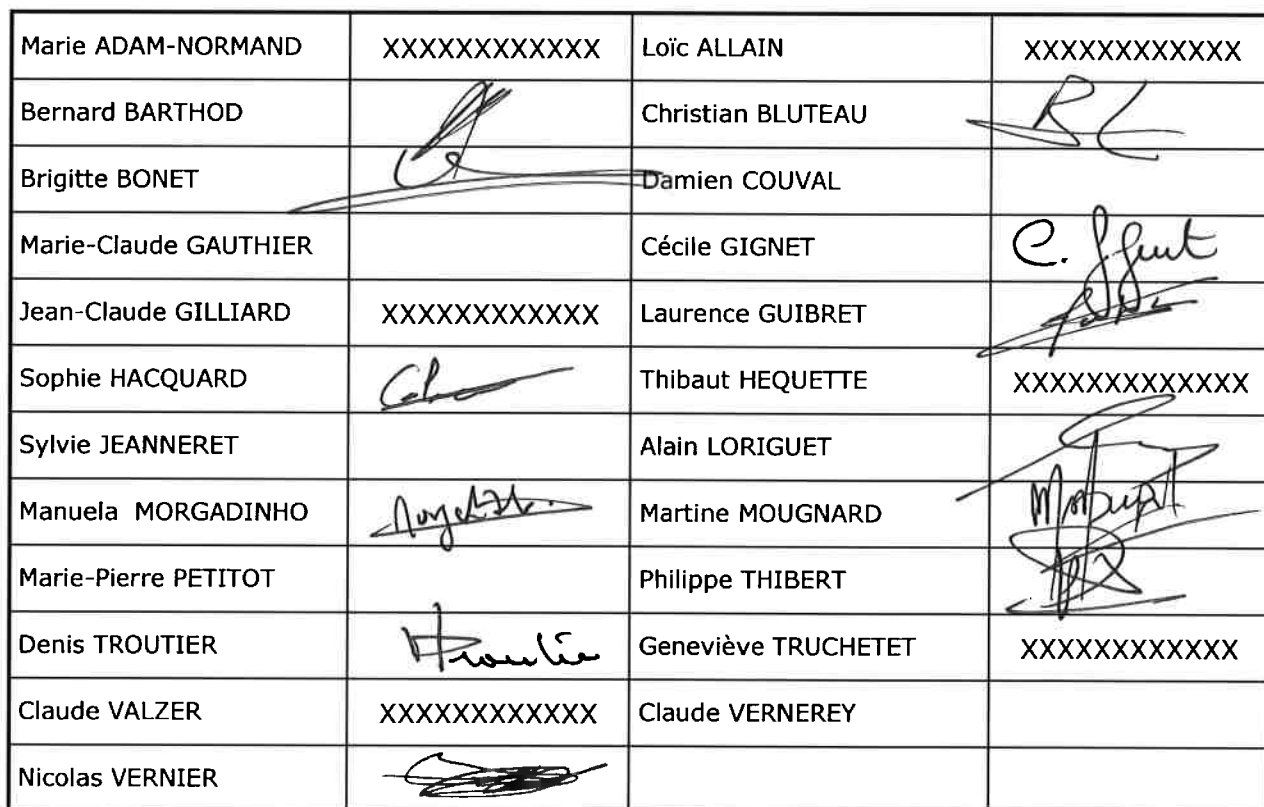 Marie ADAM-NORMAND XXXXXXXXXXXX Loïc ALLAIN XXXXXXXXXXXX
Bernard BARTHOD Christian BLUTEAU
Brigitte BONET Damien COUVAL
Marie-Claude GAUTHIER Cécile GIGNET C.
Jean-Claude GILLIARD XXXXXXXXXXXX Laurence GUIBRET
Sophie HACQUARD Thibaut HEQUETTE XXXXXXXXXXXXX
Sylvie JEANNERET Alain LORIGUET
Manuela MORGADINHO Martine MOUGNARD
Marie-Pierre PETITOT Philippe THIBERT
Denis TROUTIER Geneviève TRUCHETET XXXXXXXXXXXX
Claude VALZER XXXXXXXXXXXX Claude VERNEREY
Nicolas VERNIER